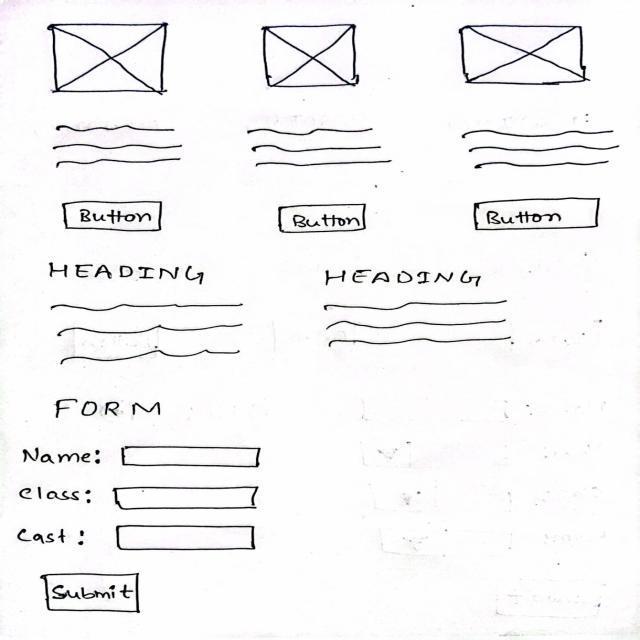 Button Button Button
HEADING HEADING
FORM
Name:
Class:
Cast:
Submit